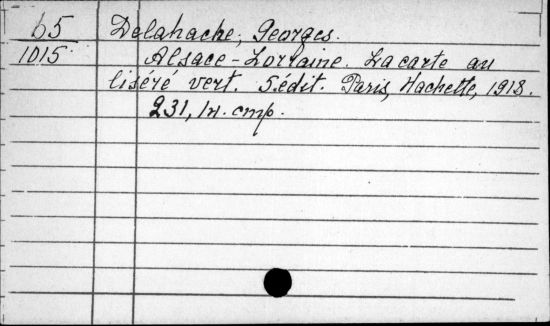 65 Delahache, Georges.
1015 Alsace-Lorraine. La carte au
liséré vert. 5.édit. Paris, Hachette, 1918.
231, IV. стр.